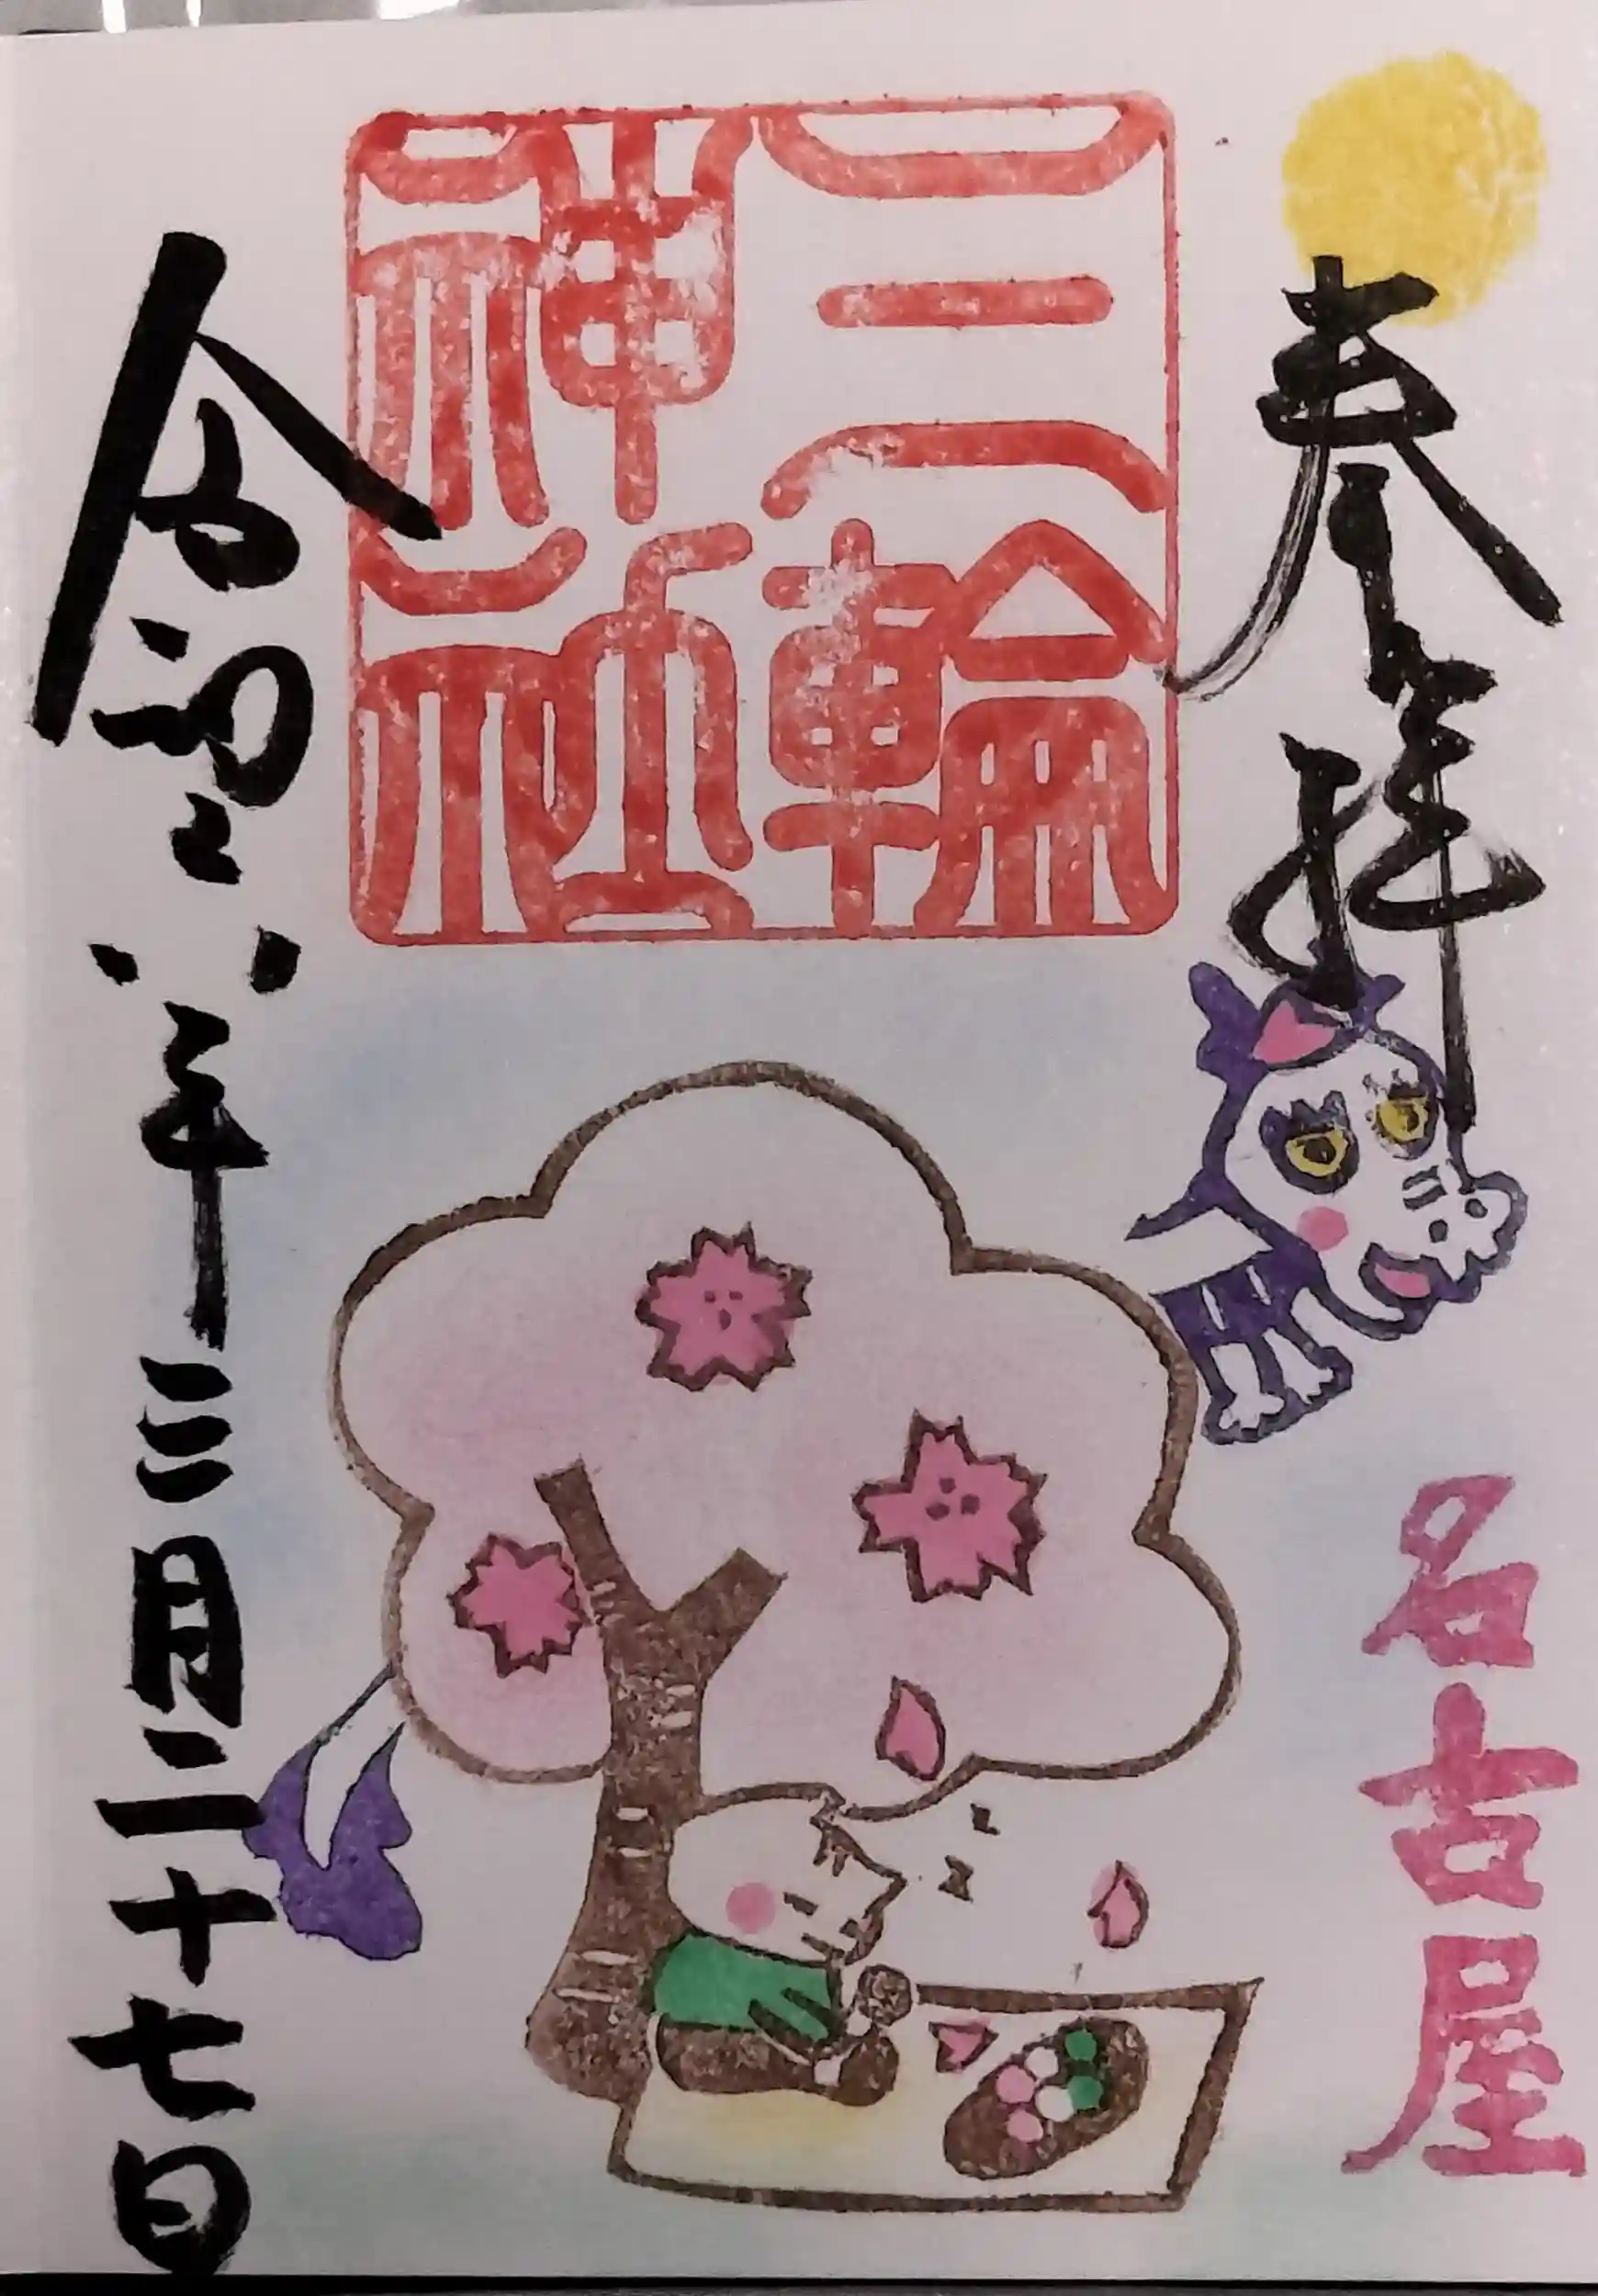 奉拝
名古屋
三輪
神社
令和六年三月二十七日